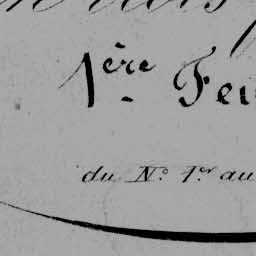 1ère Feu
du N.° 1.er au